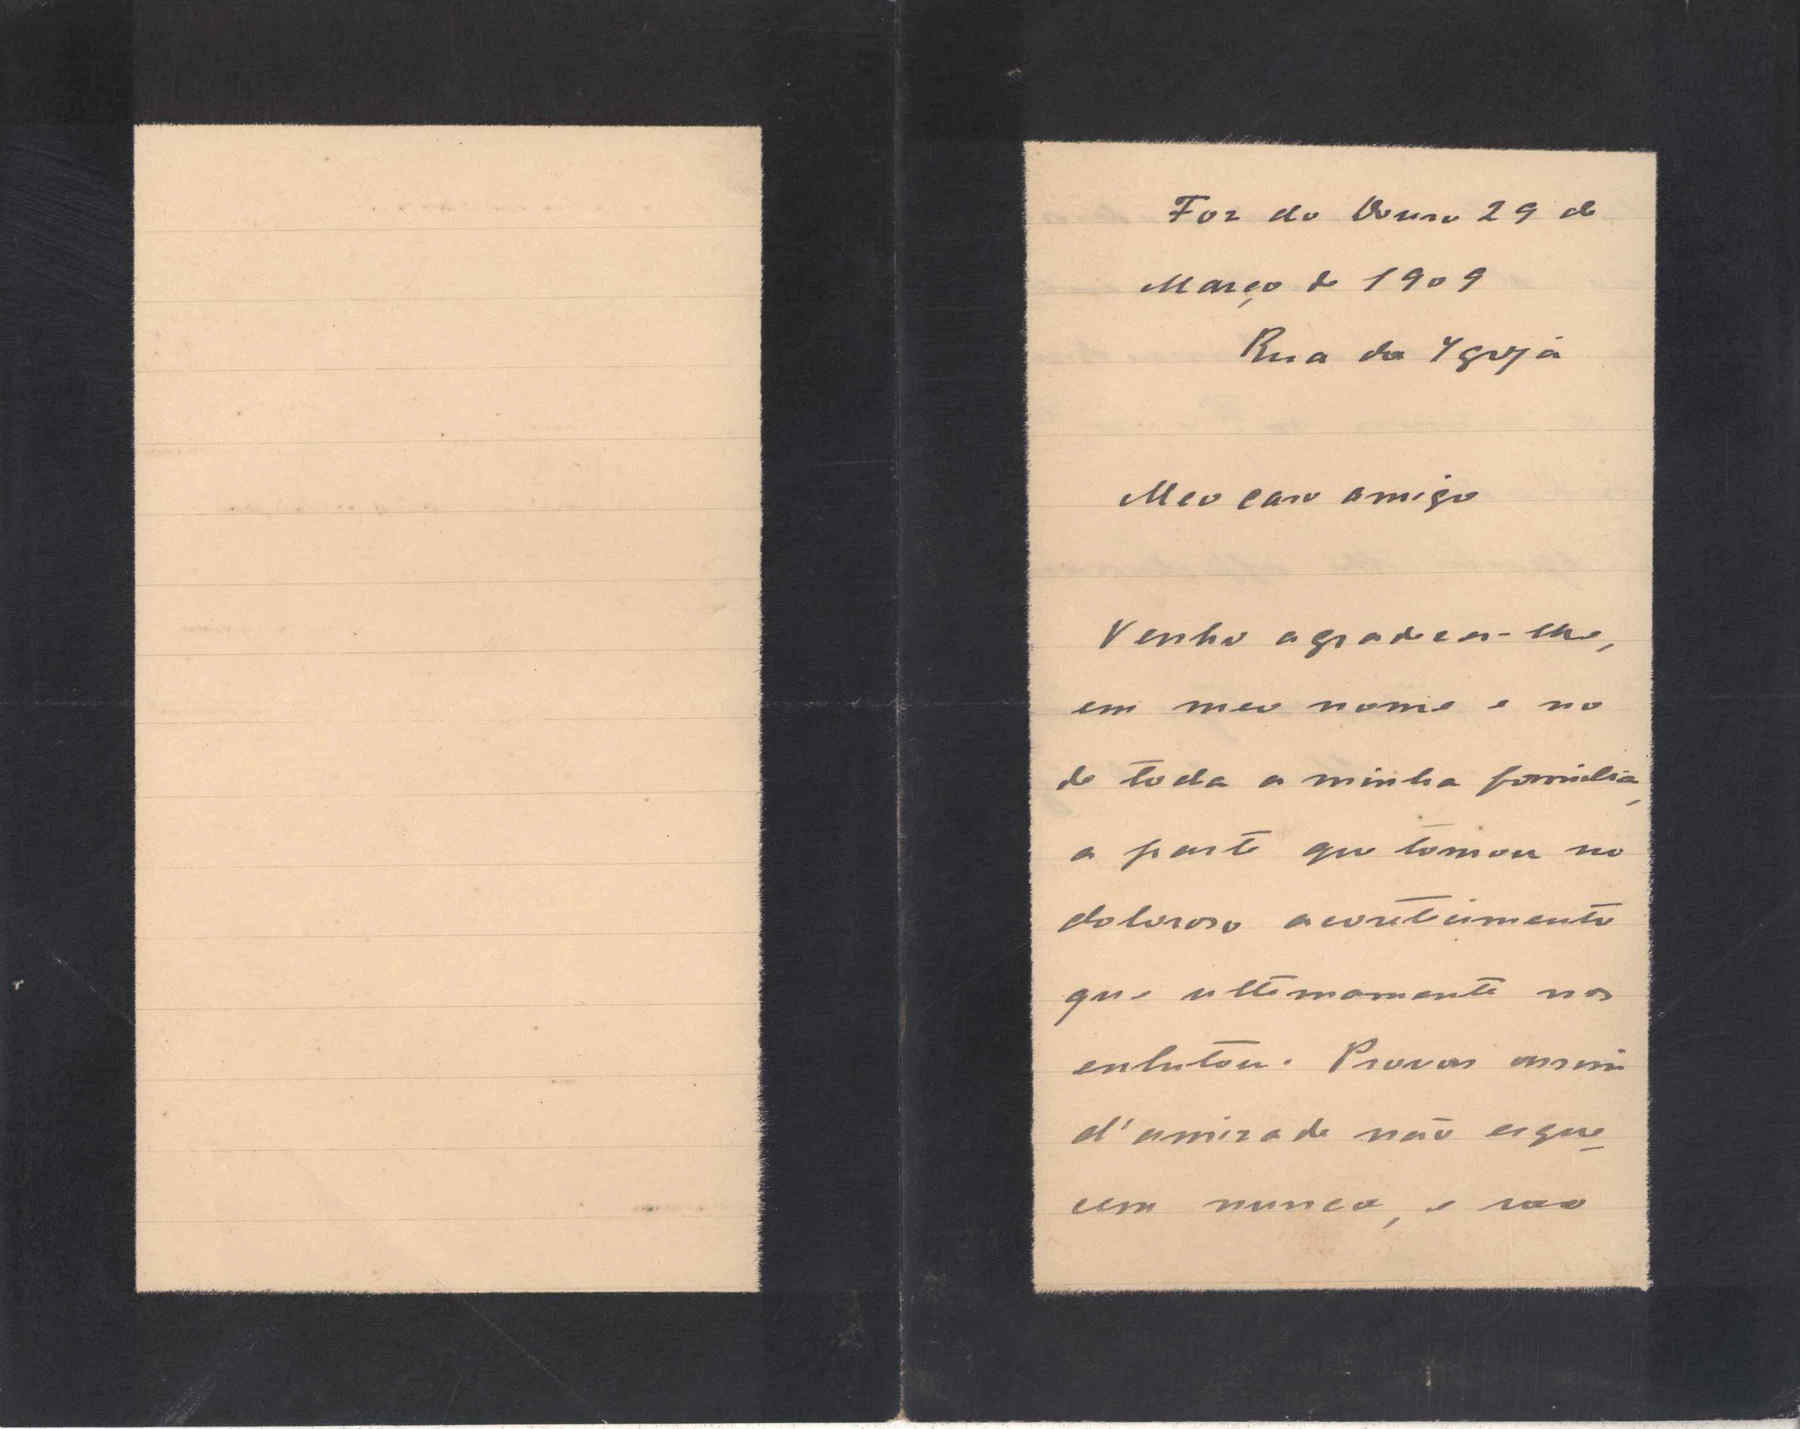 Foz do Douro 29 de
Março de 1909
Rua da Ygreja
Meu caro amigo
Venho agradecer-lhe,
em meu nome e no
de toda a minha familia,
a parte que tomou no
doloroso acontecimento
que ultimamente nos
enlutou. Provas assim
d'amizade não esque-
cem nunca, e são